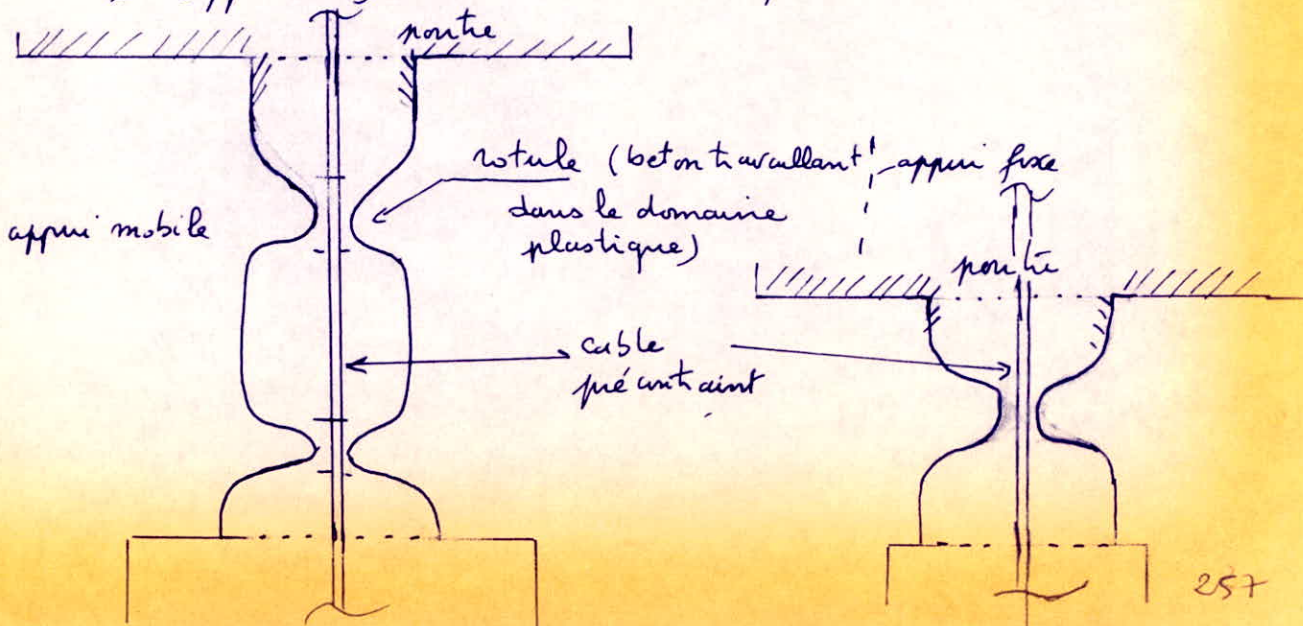 poutre
rotule (beton travaillant
dans le domaine
plastique)
appui mobile
appui fixe
poutre
cable
précontraint
257